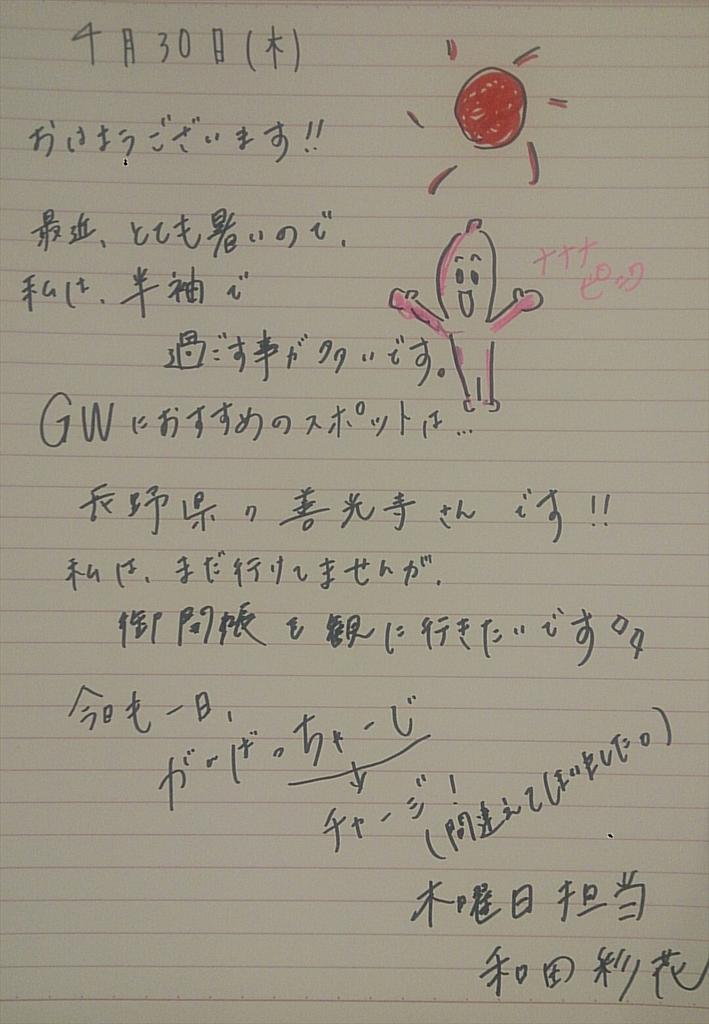 4月30日(木)
おはようございます!!
最近、とても暑いので、
私は、半袖で
過ごす事が多いです。
ナナナ
ピック
GWにおすすめのスポットは…
長野県の善光寺さんです!!
私は、まだ行けてませんが、
御開帳を観に行きたいです
今日も一日、
がーばっちゃーじ
チャージ!
(間違えてしまいました。)
木曜日担当
和田彩花